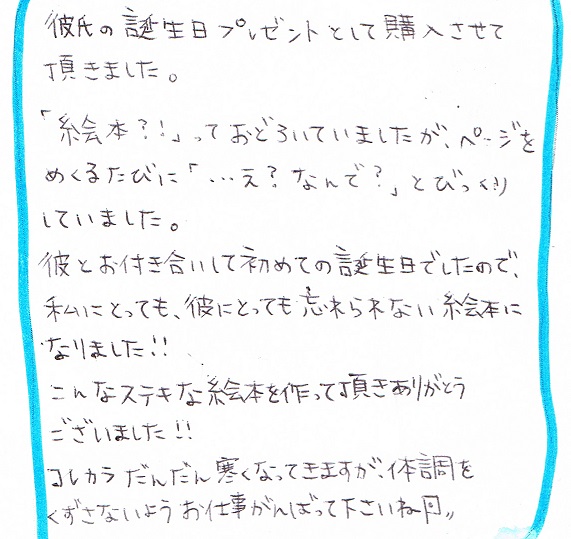 彼氏の誕生日プレゼントとして購入させて
頂きました。
「絵本?!」っておどろいていましたが、ページを
めくるたびに「…え?なんで?」とびっくり
していました。
彼とお付き合いして初めての誕生日でしたので、
私にとっても、彼にとっても忘れられない絵本に
なりました!!
こんなステキな絵本を作って頂きありがとう
ございました!!
コレカラだんだん寒くなってきますが、体調を
くずさないようお仕事がんばって下さいね